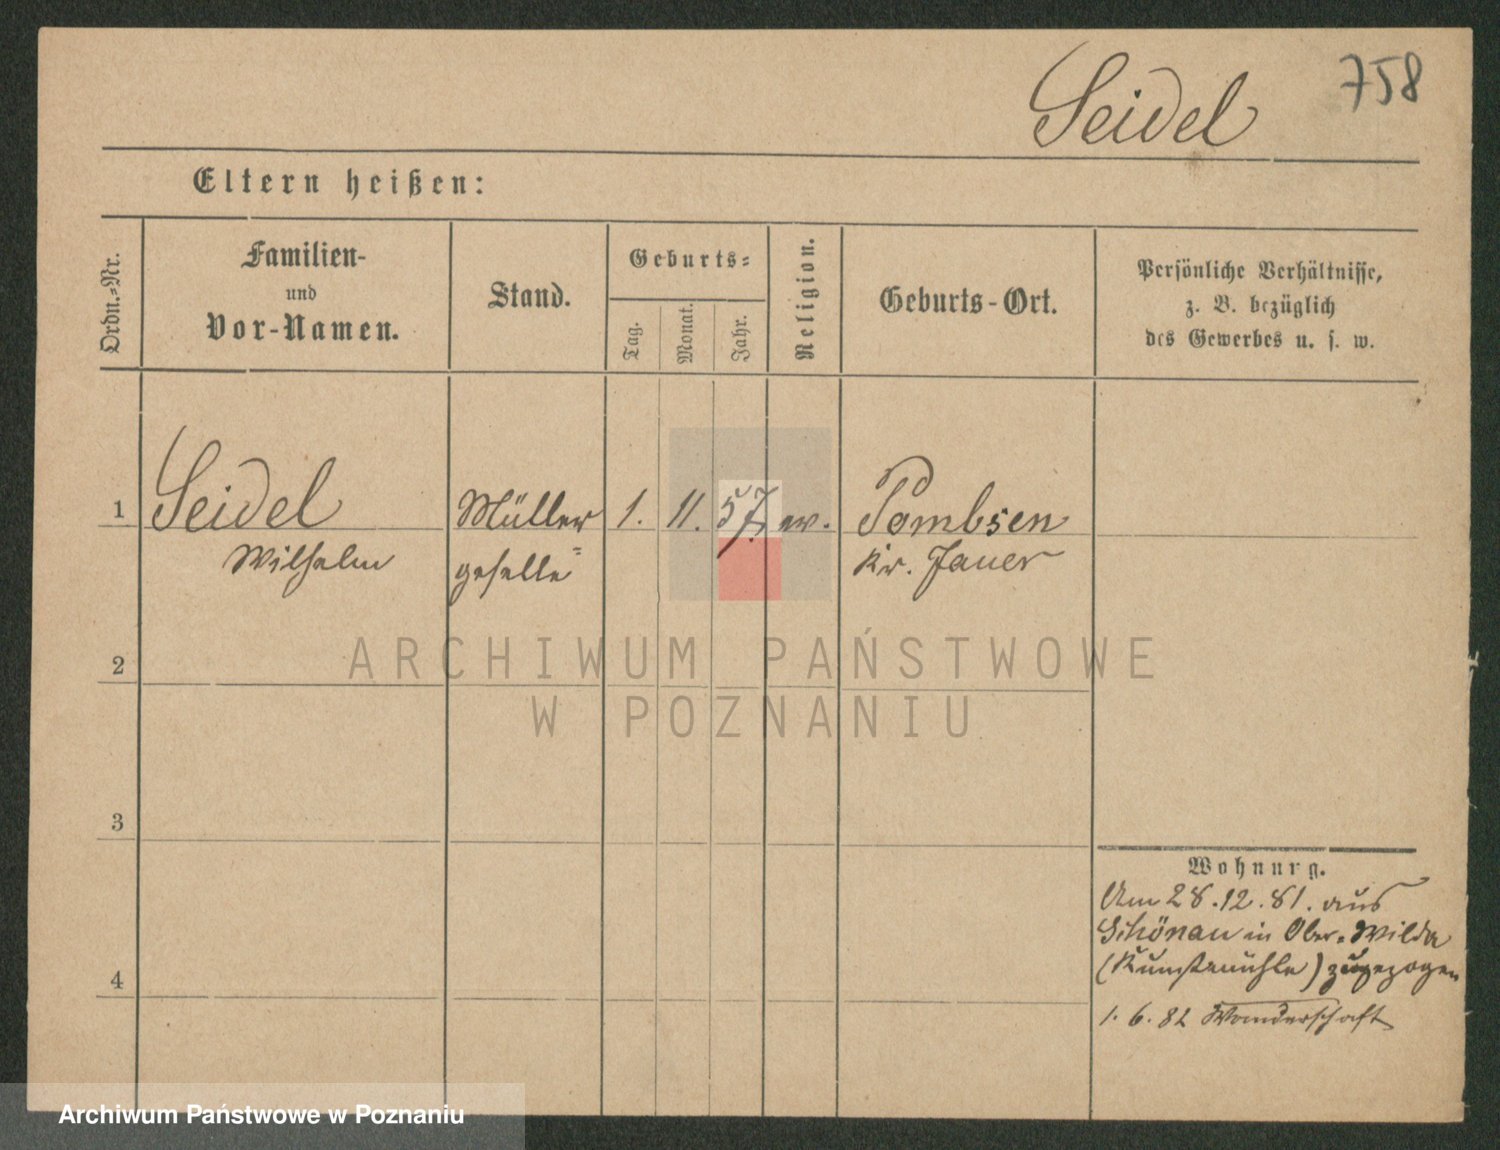 758
Seidel
Eltern heißen:
Ordn.=Nr.
Familien-
und
Vor-Namen.
Stand.
Geburts=
Tag.
Monat.
Jahr.
Religion.
Geburts-Ort.
Persönliche Verhältnisse,
z. B. bezüglich
des Gewerbes u. s. w.
1
Seidel
Müller
1.
11.
57.
ev.
Pombsen
Wilhelm
geselle
Kr. Jauer
ARCHIWUM PAŃSTWOWE
W POZNANIU
2
3
4
Wohnung.
Am 28.12.81. aus
Schönau in Ober-Wilda
(Kunstmühle) zugezogen
1.6.82 Wanderschaft
Archiwum Państwowe w Poznaniu